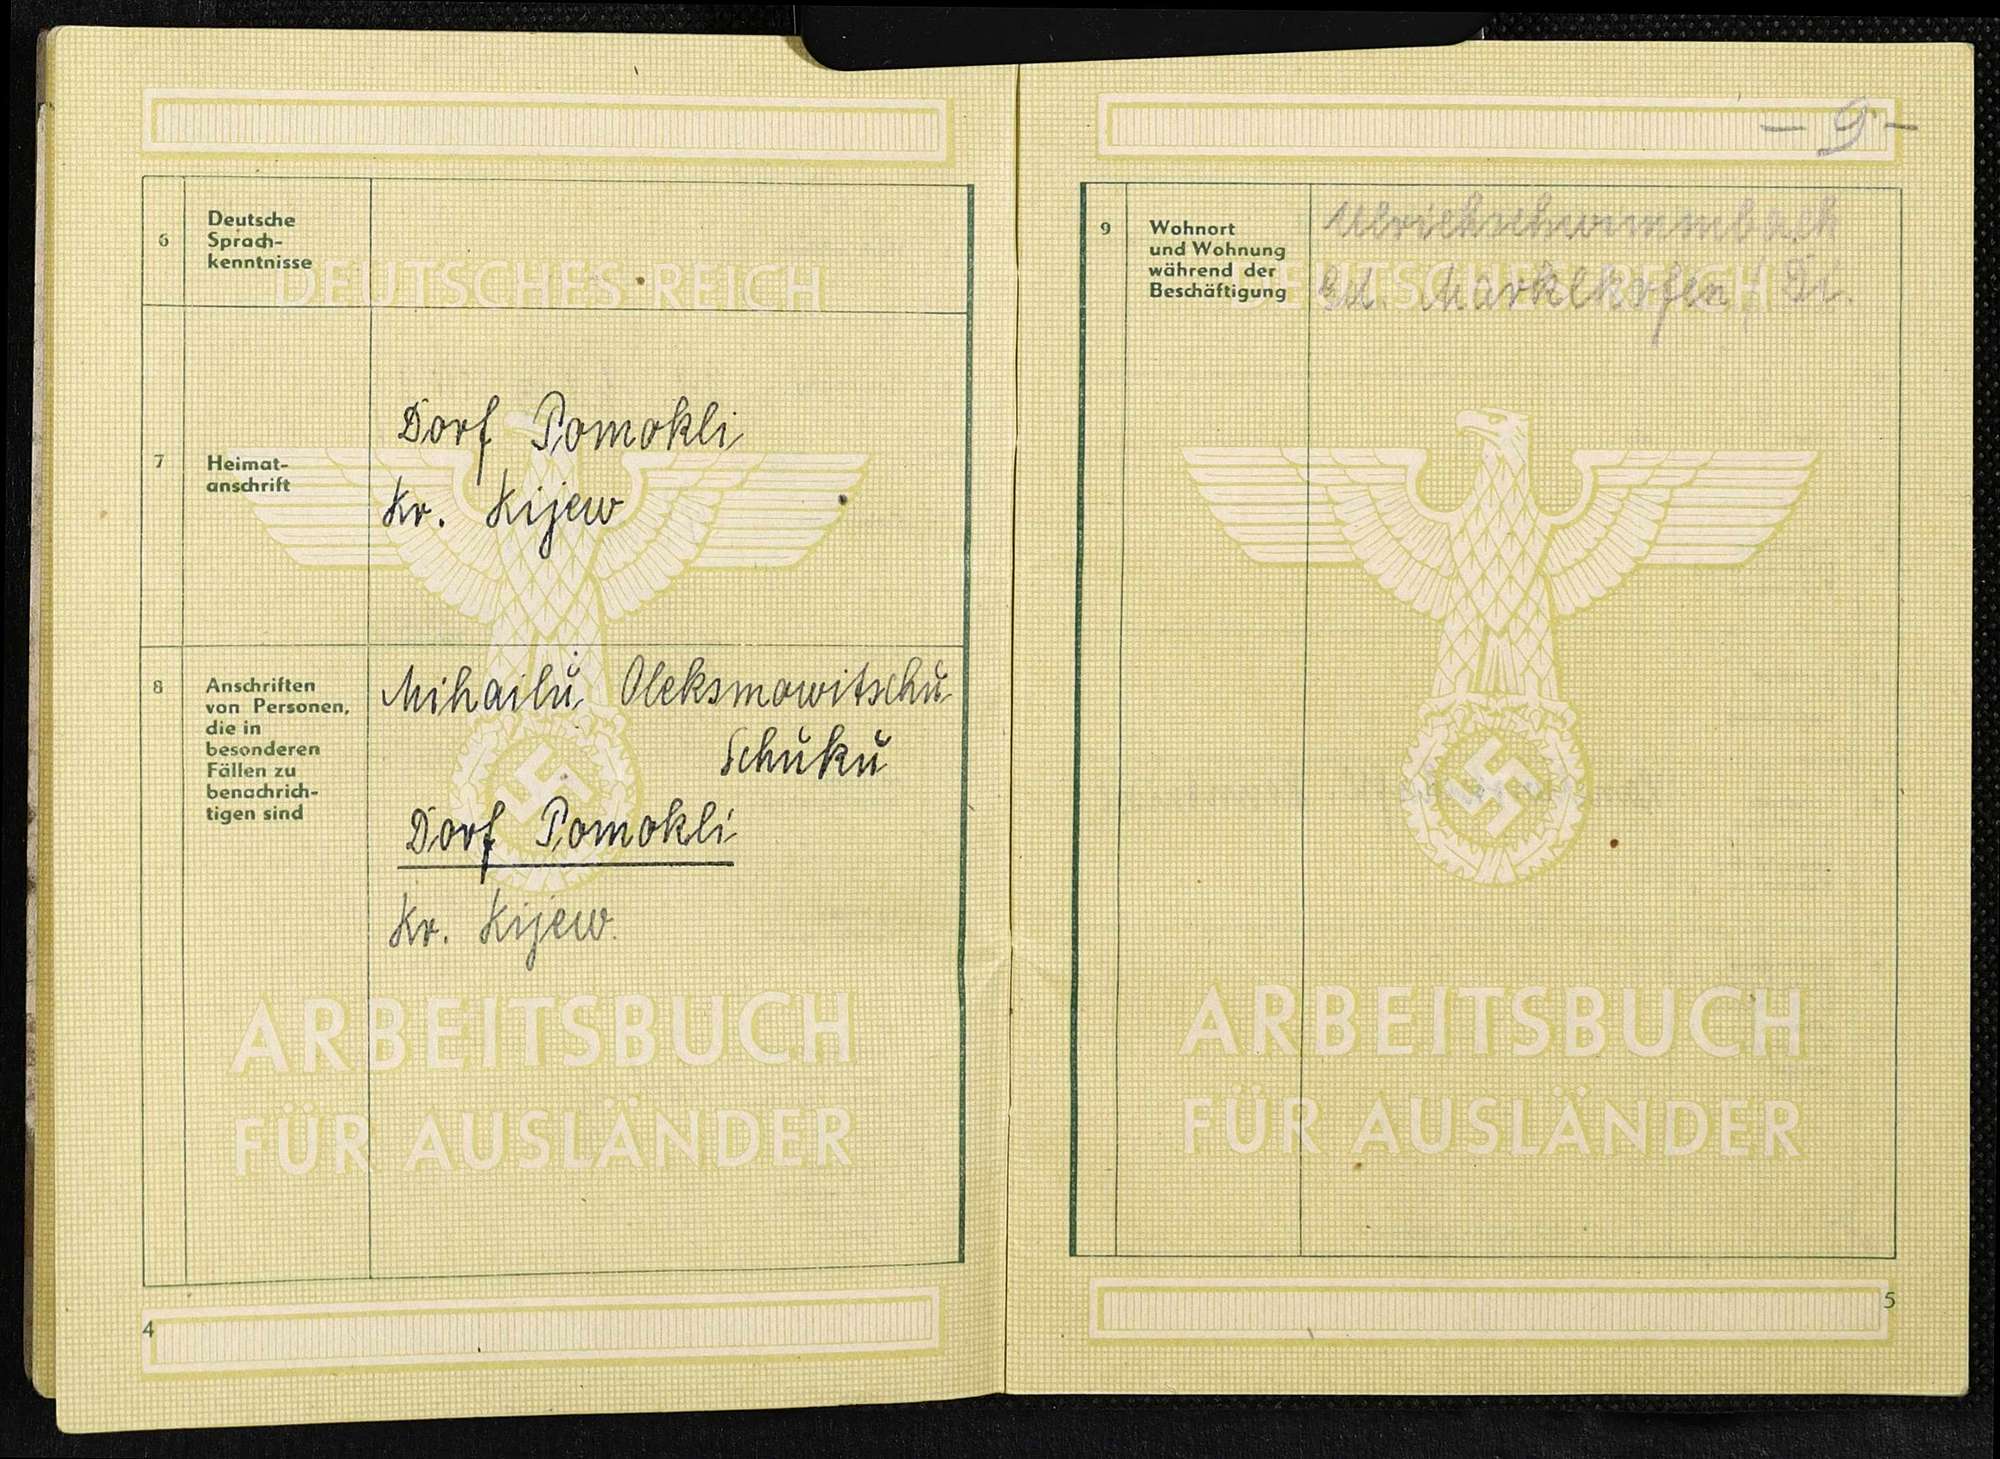 6
Deutsche
Sprach-
kenntnisse
DEUTSCHES REICH
7
Heimat-
anschrift
Dorf Pomokli
Kr. Kijew
8
Anschriften
von Personen,
die in
besonderen
Fällen zu
benachrich-
tigen sind
Mihailu Oleksmowitschu
Schuku
Dorf Pomokli
Kr. Kijew.
ARBEITSBUCH
FÜR AUSLÄNDER
4
- 9 -
9
Wohnort
und Wohnung
während der
Beschäftigung
Ulrichschwimmbach
Gd. Marklkofen /
DEUTSCHES REICH
ARBEITSBUCH
FÜR AUSLÄNDER
5